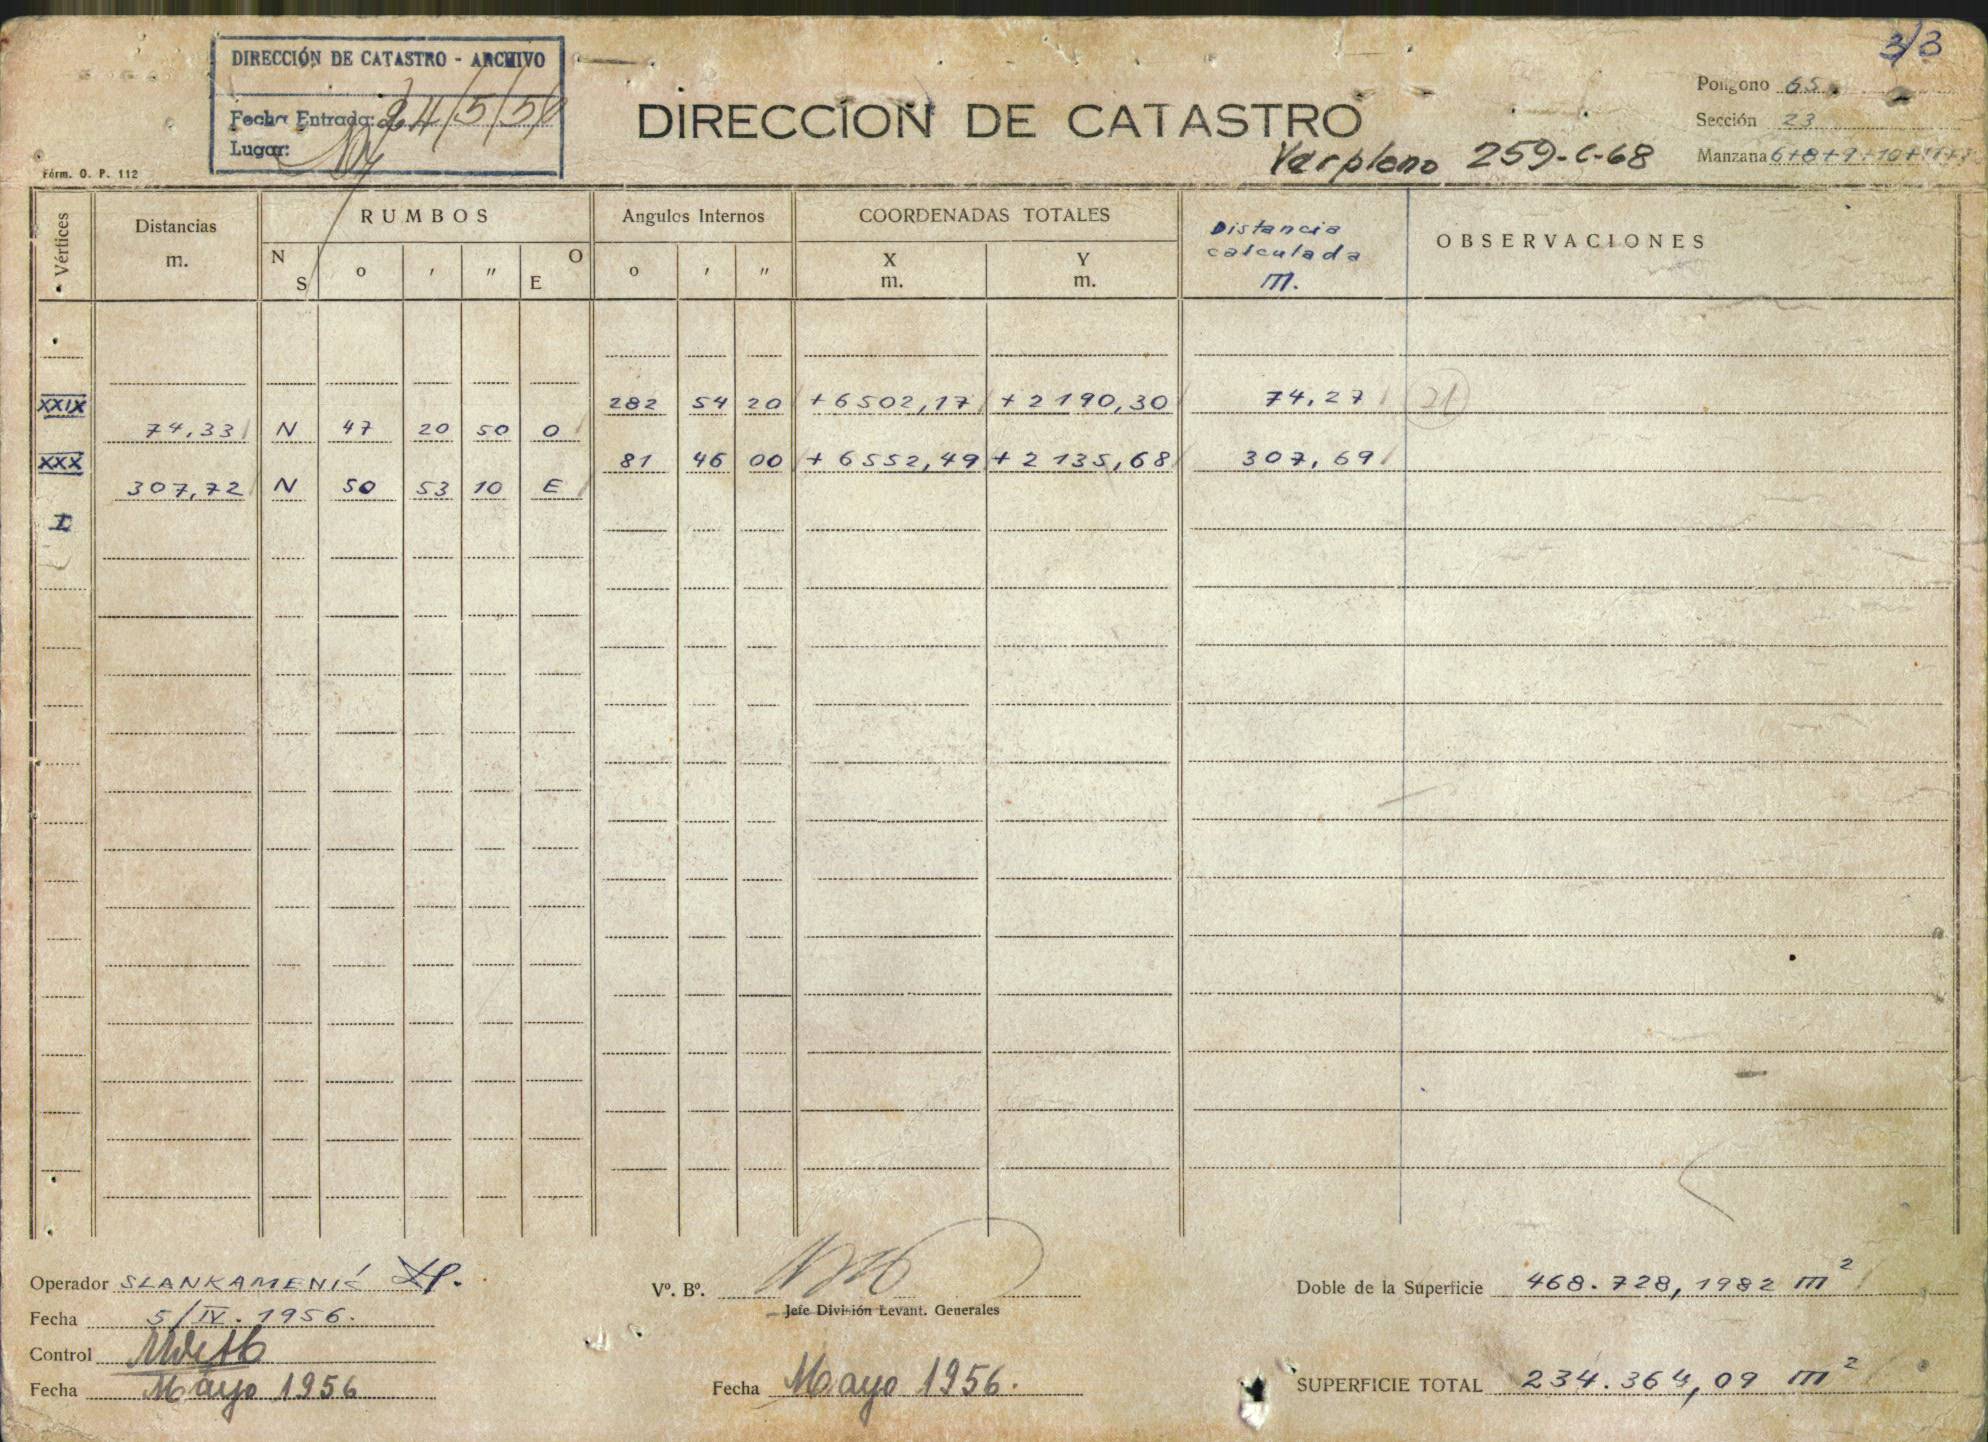 3/3
DIRECCIÓN DE CATASTRO - ARCHIVO
Fecha Entrada: 24/5/56
Lugar:
Fórm. O. P. 112
DIRECCION DE CATASTRO
Ver plano 259-C-68
Polígono 65
Sección 23
Manzana 6+8+9+10+11+
Vértices
Distancias
m.
RUMBOS
N
S
o
,
,,
O
E
Angulos Internos
o
,
,,
COORDENADAS TOTALES
X
m.
Y
m.
Distancia
calculada
m.
OBSERVACIONES
XXIX 282 54 20 +6502,17 +2190,30 74,27 21
74,33 N 47 20 50 O
XXX 81 46 00 +6552,49 +2135,68 307,69
307,72 N 50 53 10 E
I
Operador SLANKAMENIĆ
Fecha 5/IV. 1956.
Control
Fecha Mayo 1956
Vº. Bº.
Jefe División Levant. Generales
Fecha Mayo 1956.
Doble de la Superficie 468.728,1982 m²
SUPERFICIE TOTAL 234.364,09 m²